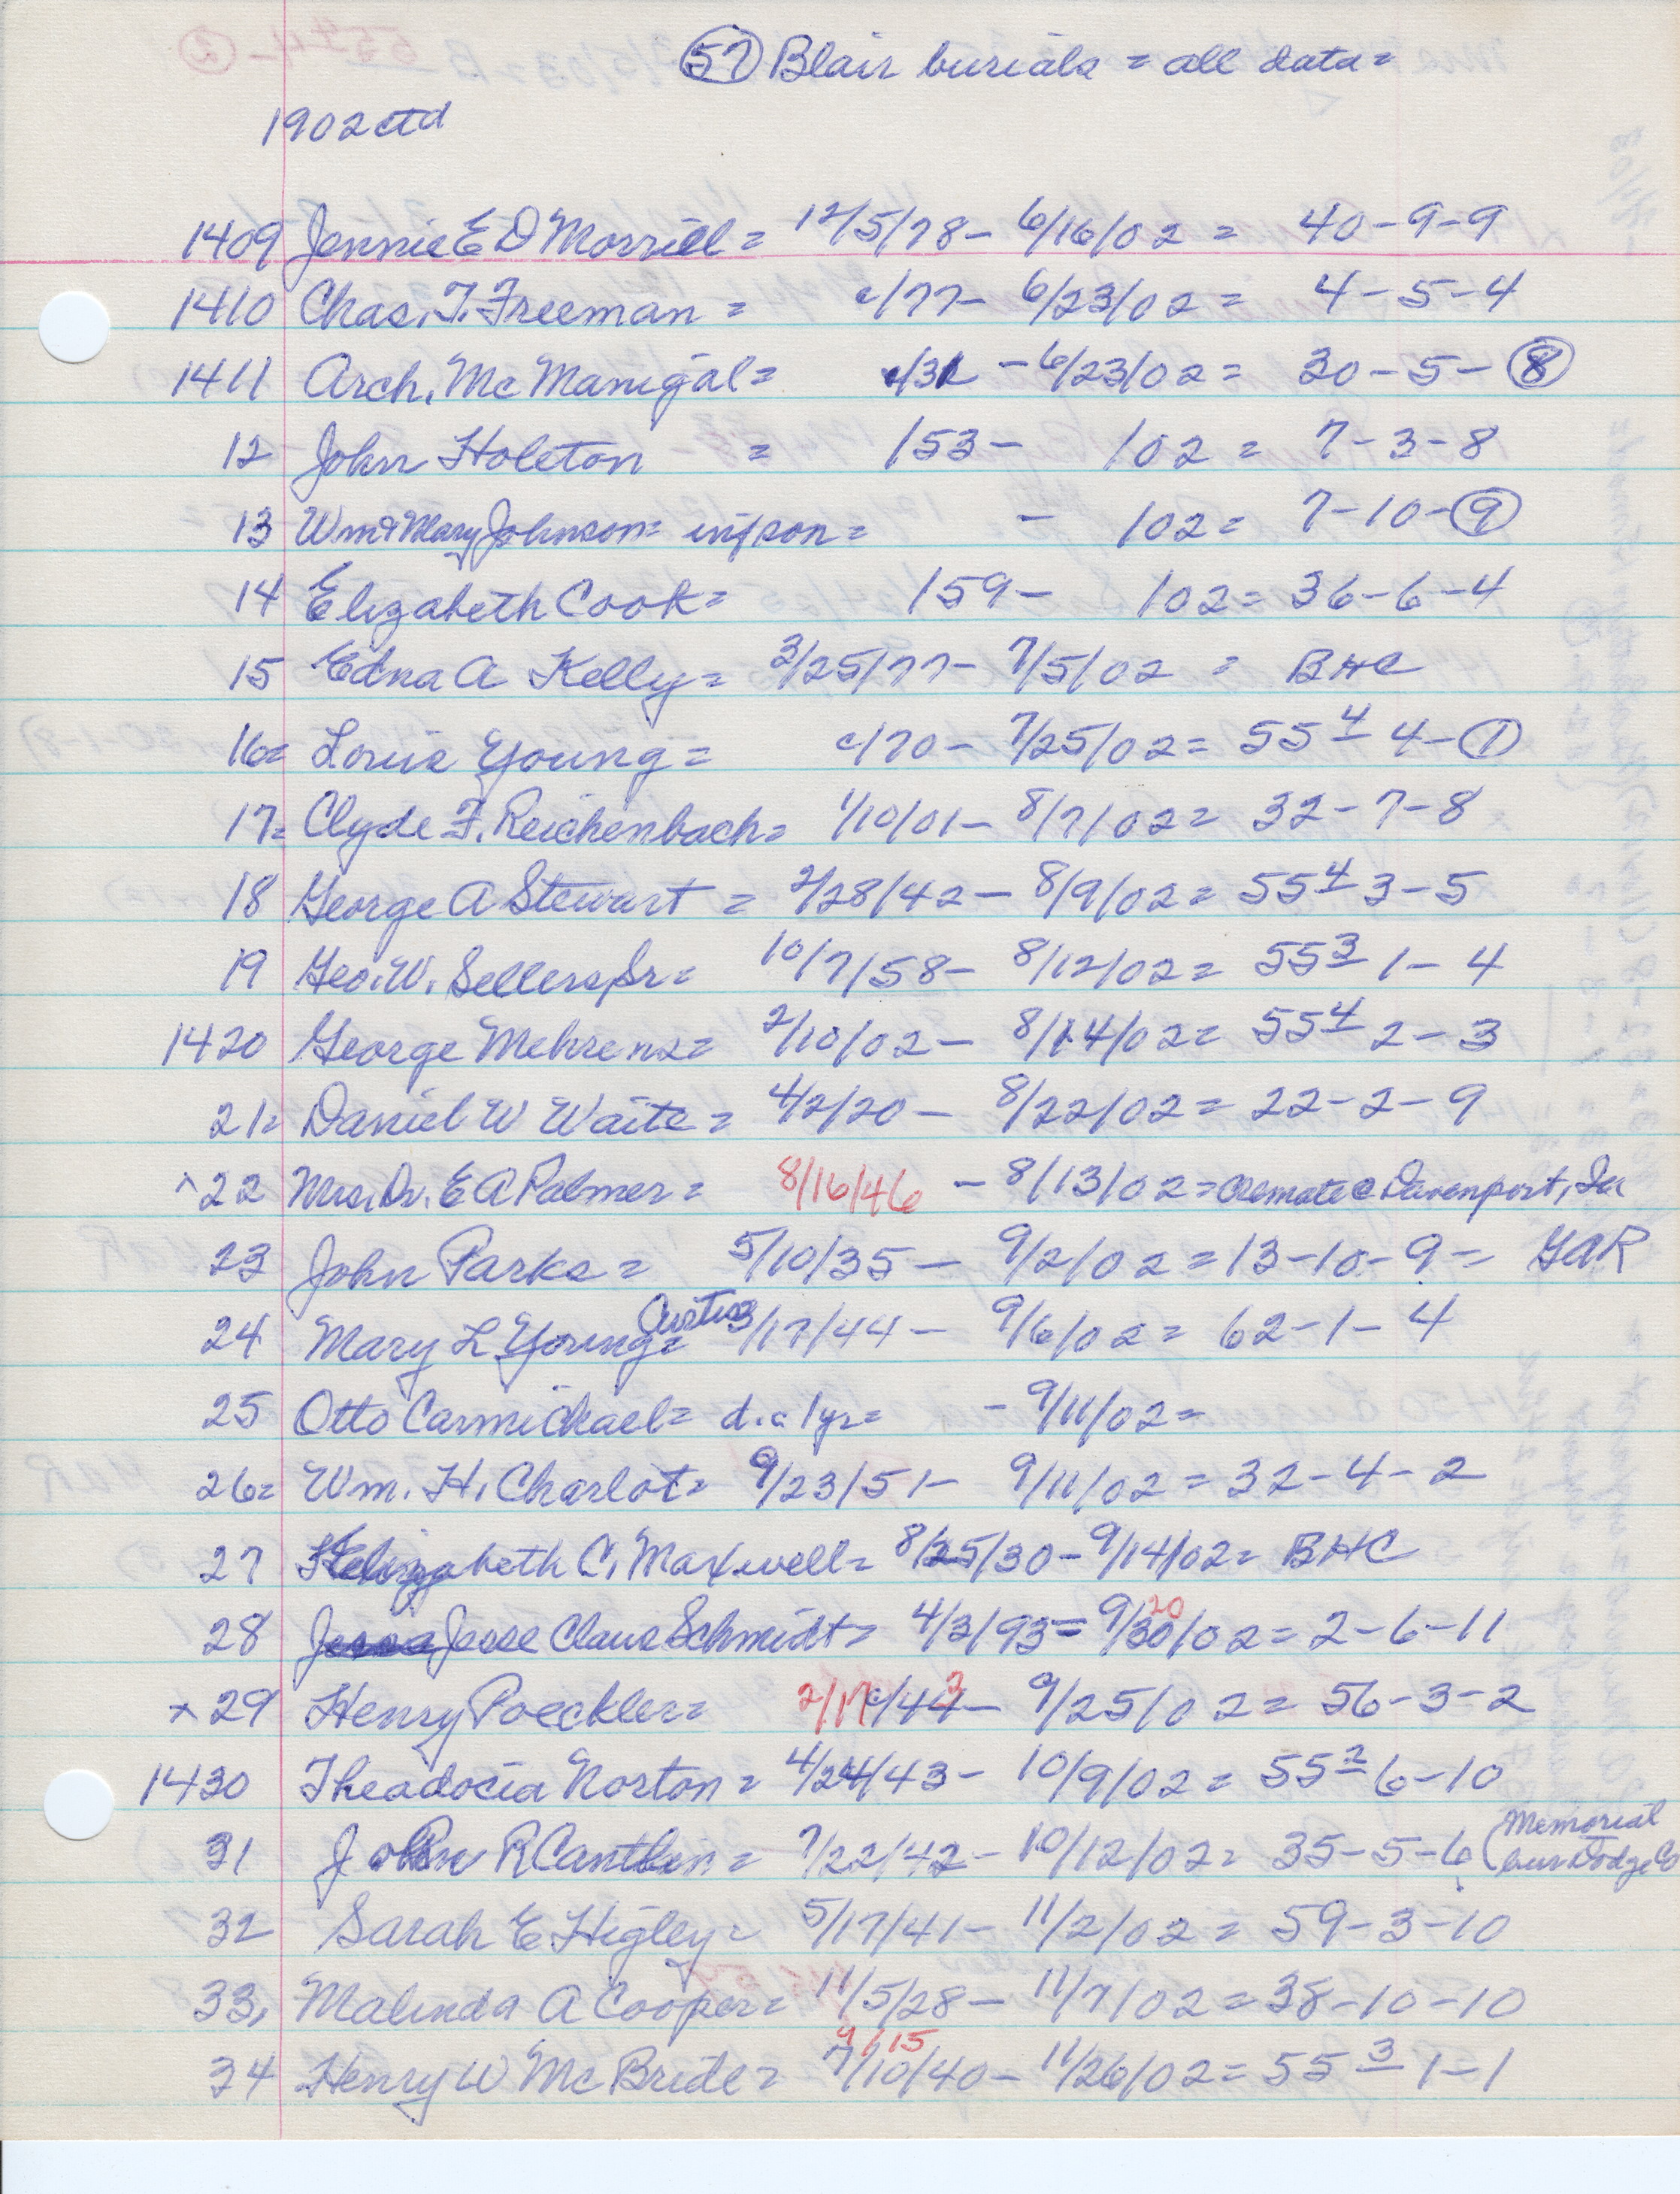 57 Blair burials = all data =
1902 ctd
1409 Jennie E D Morrill = 12/5/78 - 6/16/02 = 40-9-9
1410 Chas. T. Freeman = c/77 - 6/23/02 = 4-5-4
1411 Arch. McManigal = c/31 - 6/23/02 = 30-5-8
12 John Holeton = /53 - /02 = 7-3-8
13 Wm & Mary Johnson = inf son = - /02 = 7-10-9
14 Elizabeth Cook = /59 - /02 = 36-6-4
15 Edna A Kelly = 3/25/77 - 7/5/02 = BHC
16 = Louis Young = c/70 - 7/25/02 = 55 4 4-1
17 = Clyde F. Reichenbach = 1/10/01 - 8/7/02 = 32-7-8
18 George A Stewart = 2/28/42 - 8/9/02 = 55 4 3-5
19 Geo. W. Sellers Sr = 10/7/58 - 8/12/02 = 55 3 1-4
1420 George Mehrens = 2/10/02 - 8/14/02 = 55 4 2-3
21 = Daniel W Waite = 4/2/20 - 8/22/02 = 22-2-9
^22 Mrs. Dr. E A Palmer = 8/16/46 - 8/13/02 = Cremate @ Davenport, Ia
23 John Parks = 5/10/35 - 9/2/02 = 13-10-9 = GAR
24 Mary L Young = Curtis 3/17/44 - 9/6/02 = 62-1-4
25 Otto Carmichael = d. c 1yr = - 9/11/02 =
26 = Wm. H. Charlot = 9/23/51 - 9/11/02 = 32-4-2
27 Elizabeth C. Maxwell = 8/25/30 - 9/14/02 = BHC
28 Jesse Claus Schmidt = 4/3/93 = 9/30/02 = 2-6-11 20
x 29 Henry Poeckler = 2/17 c/44 - 9/25/02 = 56-3-2 3
1430 Theadocia Norton = 4/24/43 - 10/9/02 = 55 2 6-10
31 John R Cantlin = 7/22/42 - 10/12/02 = 35-5-6 (Memorial
bur Dodge Co
32 Sarah E Higley = 5/17/41 - 11/2/02 = 59-3-10
33, Malinda A Cooper = 11/5/28 - 11/7/02 = 38-10-10
9/15
34 Henry W McBride = 7/10/40 - 11/26/02 = 55 3 1-1